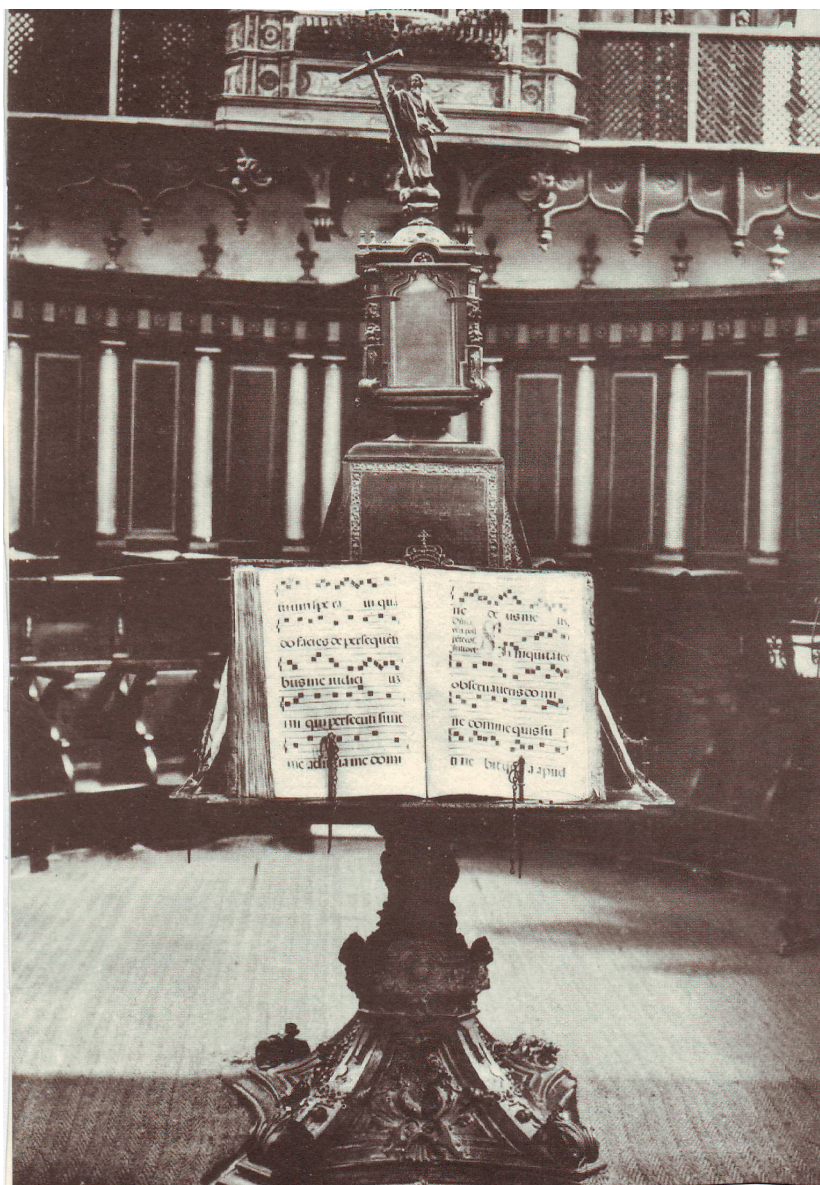 tuum spe ra ui qua
do facies de persequēti
bus me iudici uz
ini qui persecuti sunt
me adiuua me domi
ne de us me us,
Si iniquitates
obseruaueris do mi
ne domine quis su s
ti ne bit apud